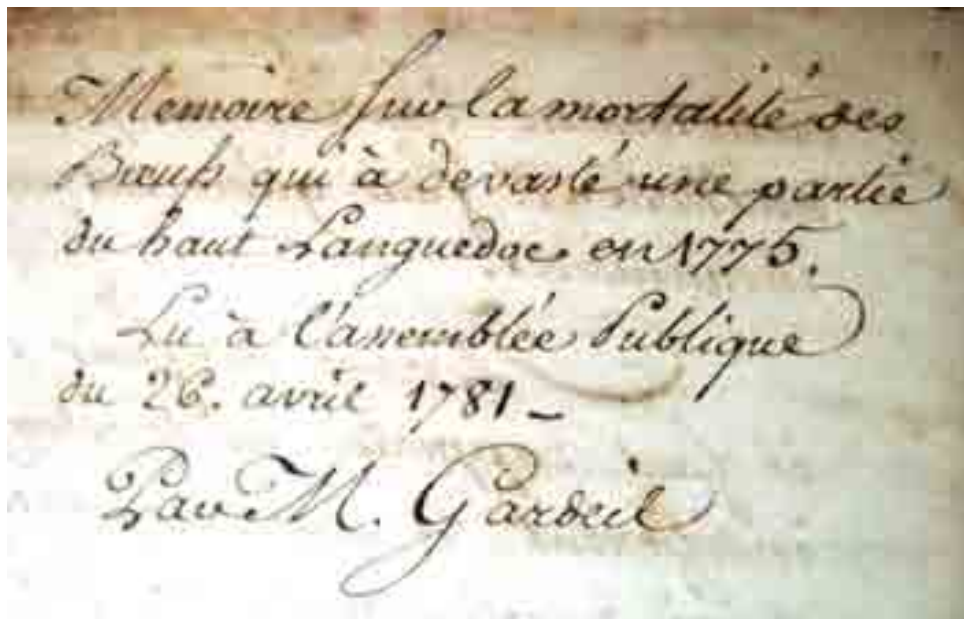 Memoire sur la mortalité des
Bœufs qui à devasté une partie
du haut Languedoc en 1775.
Lu à l'assemblée Publique
du 26. avril 1781 –
Par M. Gardeil